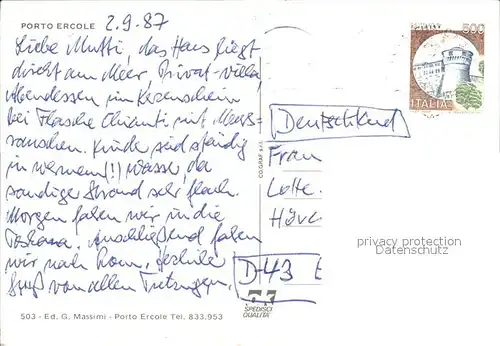 PORTO ERCOLE 2.9.87
Liebe Mutti, das Haus liegt
direkt am Meer, Privat-Villa,
Abendessen im Kerzenschein
bei Flasche Chianti mit Meeres=
rauschen. Kinder sind ständig
in warmem (!) Wasser, da
sandige Strand sehr flach.
Morgen fahren wir in die
Toskana. Anschließend fahren
wir nach Rom. Herzliche
Grüß von allen
503 - Ed. G. Massimi - Porto Ercole Tel. 833.953
CO.GRAF s.r.l.
500
ITALIA
Deutschland
Frau
Lotte
D-43 E
SPEDISCI
QUALITA'
privacy protection
Datenschutz